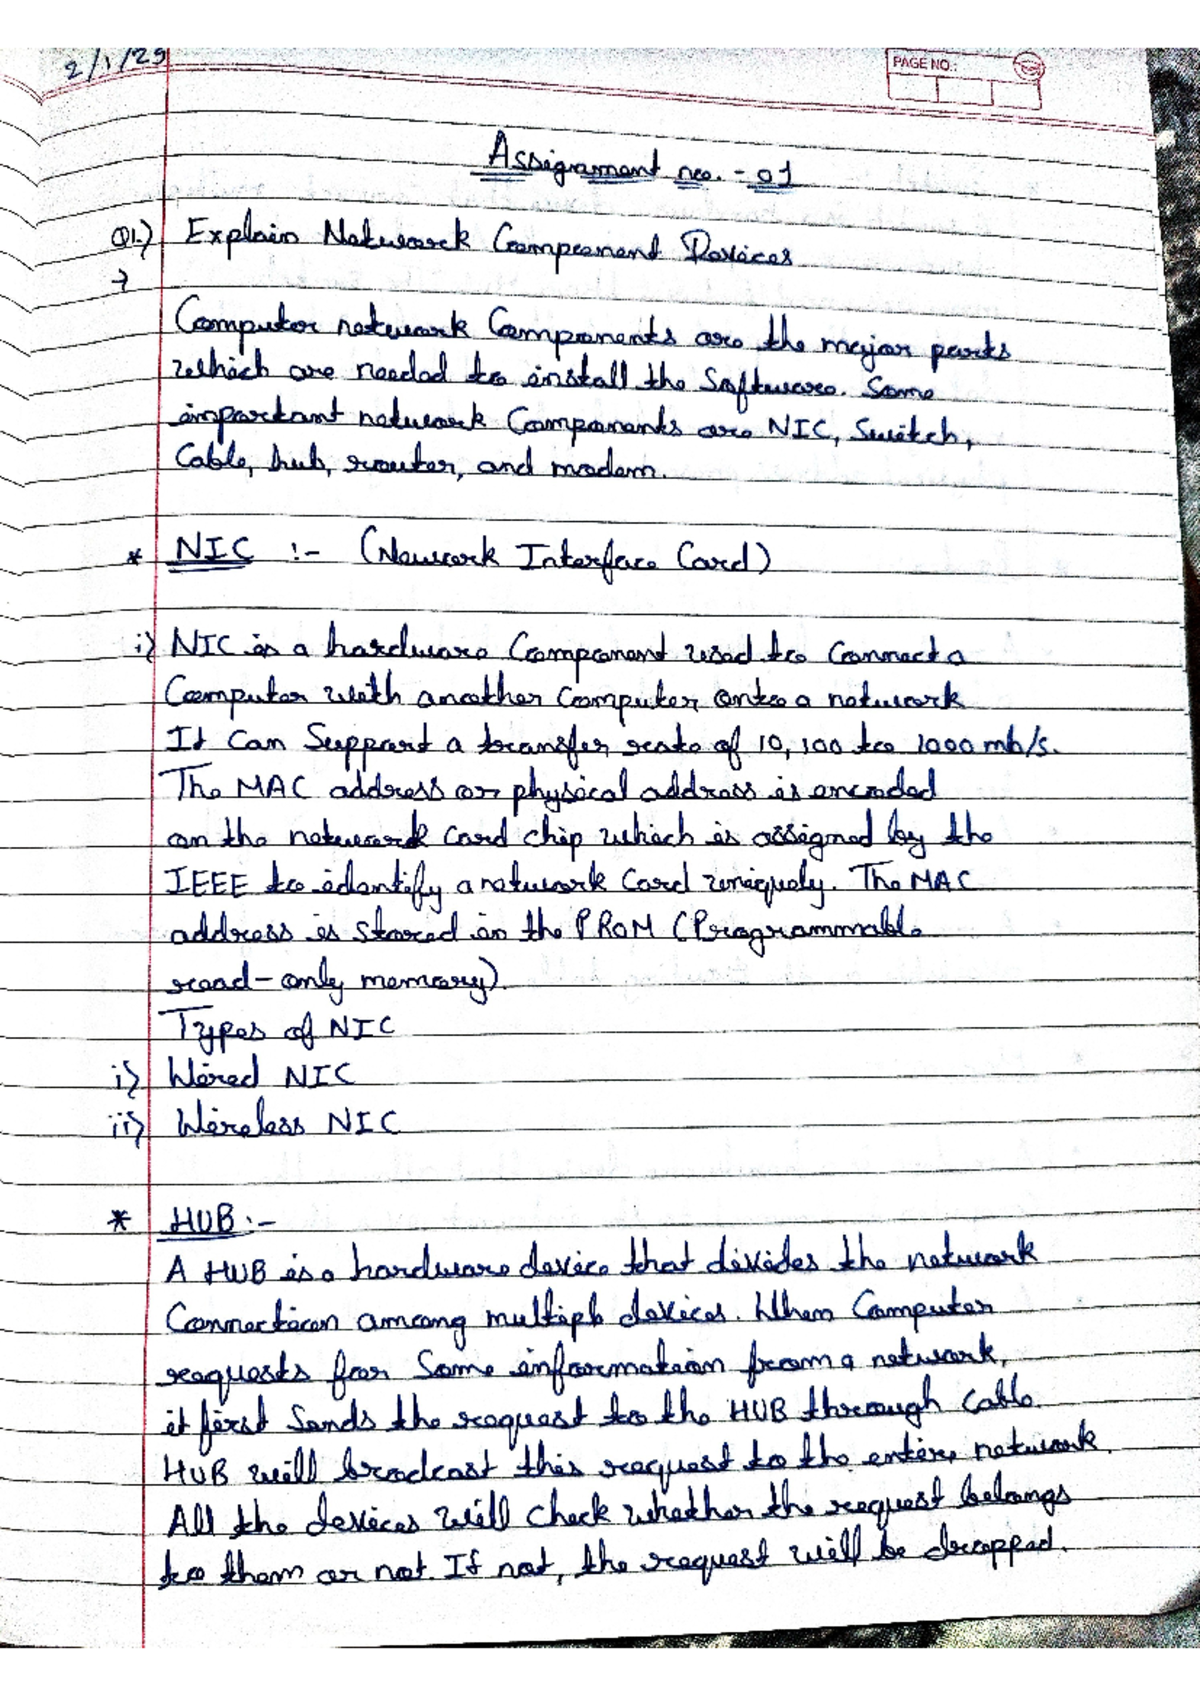 2/1/25
PAGE NO.:
Assignment no. - 01
Q1.) Explain Network Component Devices
→
Computer network Components are the major parts
which are needed to install the Software. Some
important network Components are NIC, Switch,
Cable, hub, router, and modem.
* NIC :- (Nework Interface Card)
i) NIC is a hardware Component used to Connect a
Computer with another Computer onto a network
It Can Support a transfer rate of 10, 100 to 1000 mb/s.
The MAC address or physical address is encoded
on the network Card chip which is assigned by the
IEEE to identify a network Card uniquely. The MAC
address is stored in the PROM (Programmable
read-only memory).
Types of NIC
i) Wired NIC
ii) Wireless NIC
* HUB :-
A HUB is a hardware device that divides the network
Connection among multiple devices. When Computer
requests for Some information from a network,
it first Sends the request to the HUB through Cable.
HUB will brodcast this request to the entire network.
All the devices will Check whether the request belongs
to them or not. If not, the request will be dropped.